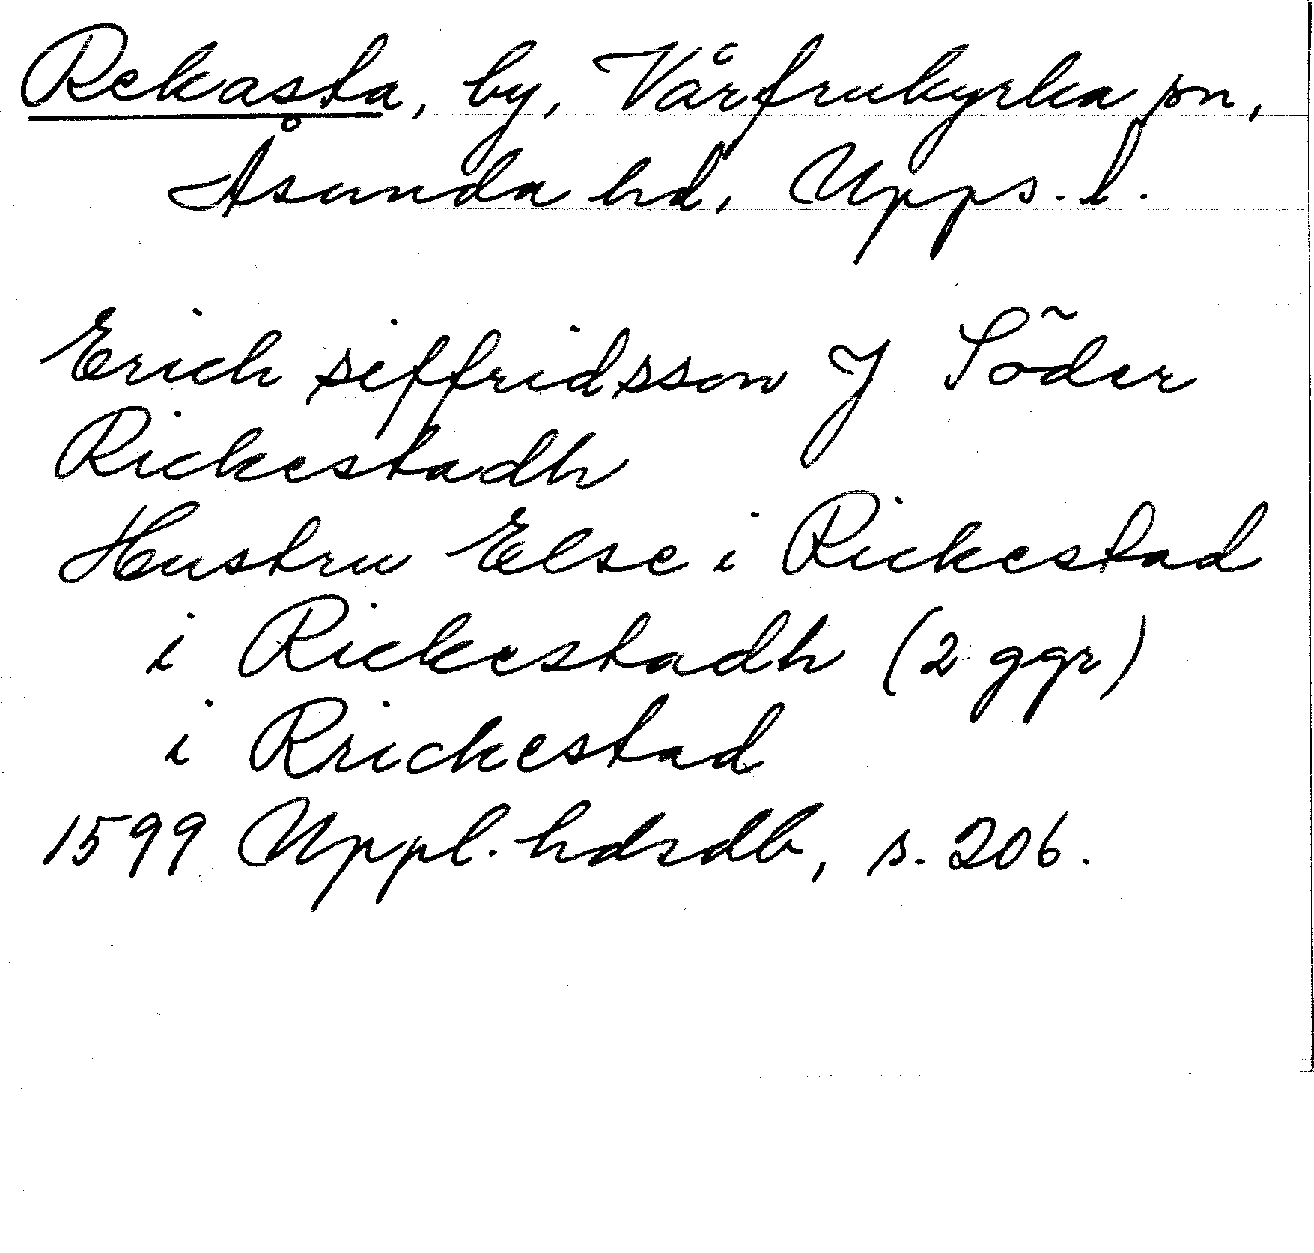 Rekasta, by, Vårfrukyrka sn,
Åsunda hd, Upps. l.
Erich siffridsson J Söder
Rickestadh
Hustru Else i Rickestad
i Rickestadh (2 ggr)
i Rrickestad
1599 Uppl. hdrdb, s. 206.